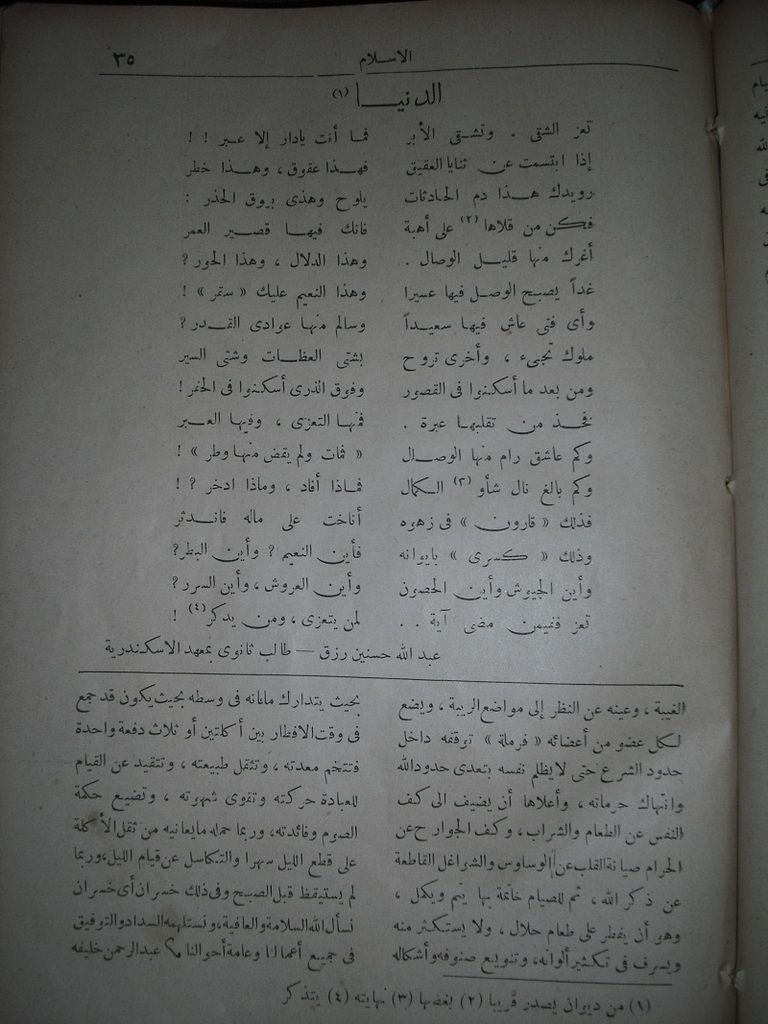 الاسلام ٣٥
الدنيا (١)
تعز الشقى . وتشقى الأبر فما أنت يادار إلا عبر ! !
إذا ابتسمت عن ثنايا العقيق فهذا عقوق ، وهذا خطر
رويدك هذا دم الحادثات يلوح وهذى بروق الحذر :
فكن من قلاها (٢) على أهبة فانك فيها قصير العمر
أغرك منها قليل الوصال . وهذا الدلال ، وهذا الحور ?
غداً يصبح الوصل فيها عسيرا وهذا النعيم عليك « ستمر » !
وأى فتى عاش فيها سعيداً وسالم منها عوادى القدر ?
ملوك تجىء ، وأخرى تروح بشتى العظات وشتى السير
ومن بعد ما أسكنوا فى القصور وفوق الذرى أسكنوا فى الحفر !
فخذ من تقلبها عبرة . فمنها التعزى ، وفيها العبر
وكم عاشق رام منها الوصال « فمات ولم يقض منها وطر » !
وكم بالغ نال شأو (٣) الكمال فماذا أفاد ، وماذا ادخر ? !
فذلك « قارون » فى زهوه أناخت على ماله فاندثر
وذلك « كسرى » بايوانه فأين النعيم ? وأين البطر ?
وأين الجيوش وأين الحصون وأين العروش ، وأين السرر ?
تعز ففيمن مضى آية . . لمن يتعزى ، ومن يدكر (٤) !
عبد الله حسنين رزق — طالب ثانوى بمعهد الاسكندرية
الغيبة ، وعينه عن النظر إلى مواضع الريبة ، ويضع
لكل عضو من أعضائه « فرملة » توقفه داخل
حدود الشرع حتى لا يظلم نفسه بتعدى حدود الله
وانتهاك حرماته ، وأعلاها أن يضيف الى كف
النفس عن الطعام والشراب ، وكف الجوارح عن
الحرام صيانة القلب عن الوساوس والشواغل القاطعة
عن ذكر الله ، ثم للصيام خاتمة بها يتم ويكمل ،
وهو أن يفطر على طعام حلال ، ولا يستكثر منه
ويسرف فى تكثير ألوانه، وتنويع صنوفه وأشكاله
بحيث يتدارك مافاته فى وسطه بحيث يكون قد جمع
فى وقت الافطار بين أكلتين أو ثلاث دفعة واحدة
فتتخم معدته ، وتثقل طبيعته ، وتتقيد عن القيام
للعبادة حركته وتقوى شهوته ، وتضيع حكمة
الصوم وفائدته، وربما حمله مايعانيه من ثقل الأكلة
على قطع الليل سهرا والتكاسل عن قيام الليل، وربما
لم يستيقظ قبل الصبح وفى ذلك خسران أى خسران
نسأل الله السلامة والعافية، ونستلهمه السداد والتوفيق
فى جميع أعمالنا وعامة أحوالنا عبدالرحمن خليفه
(١) من ديوان يصدر قريبا (٢) بغضها (٣) نهايته (٤) يتذكر